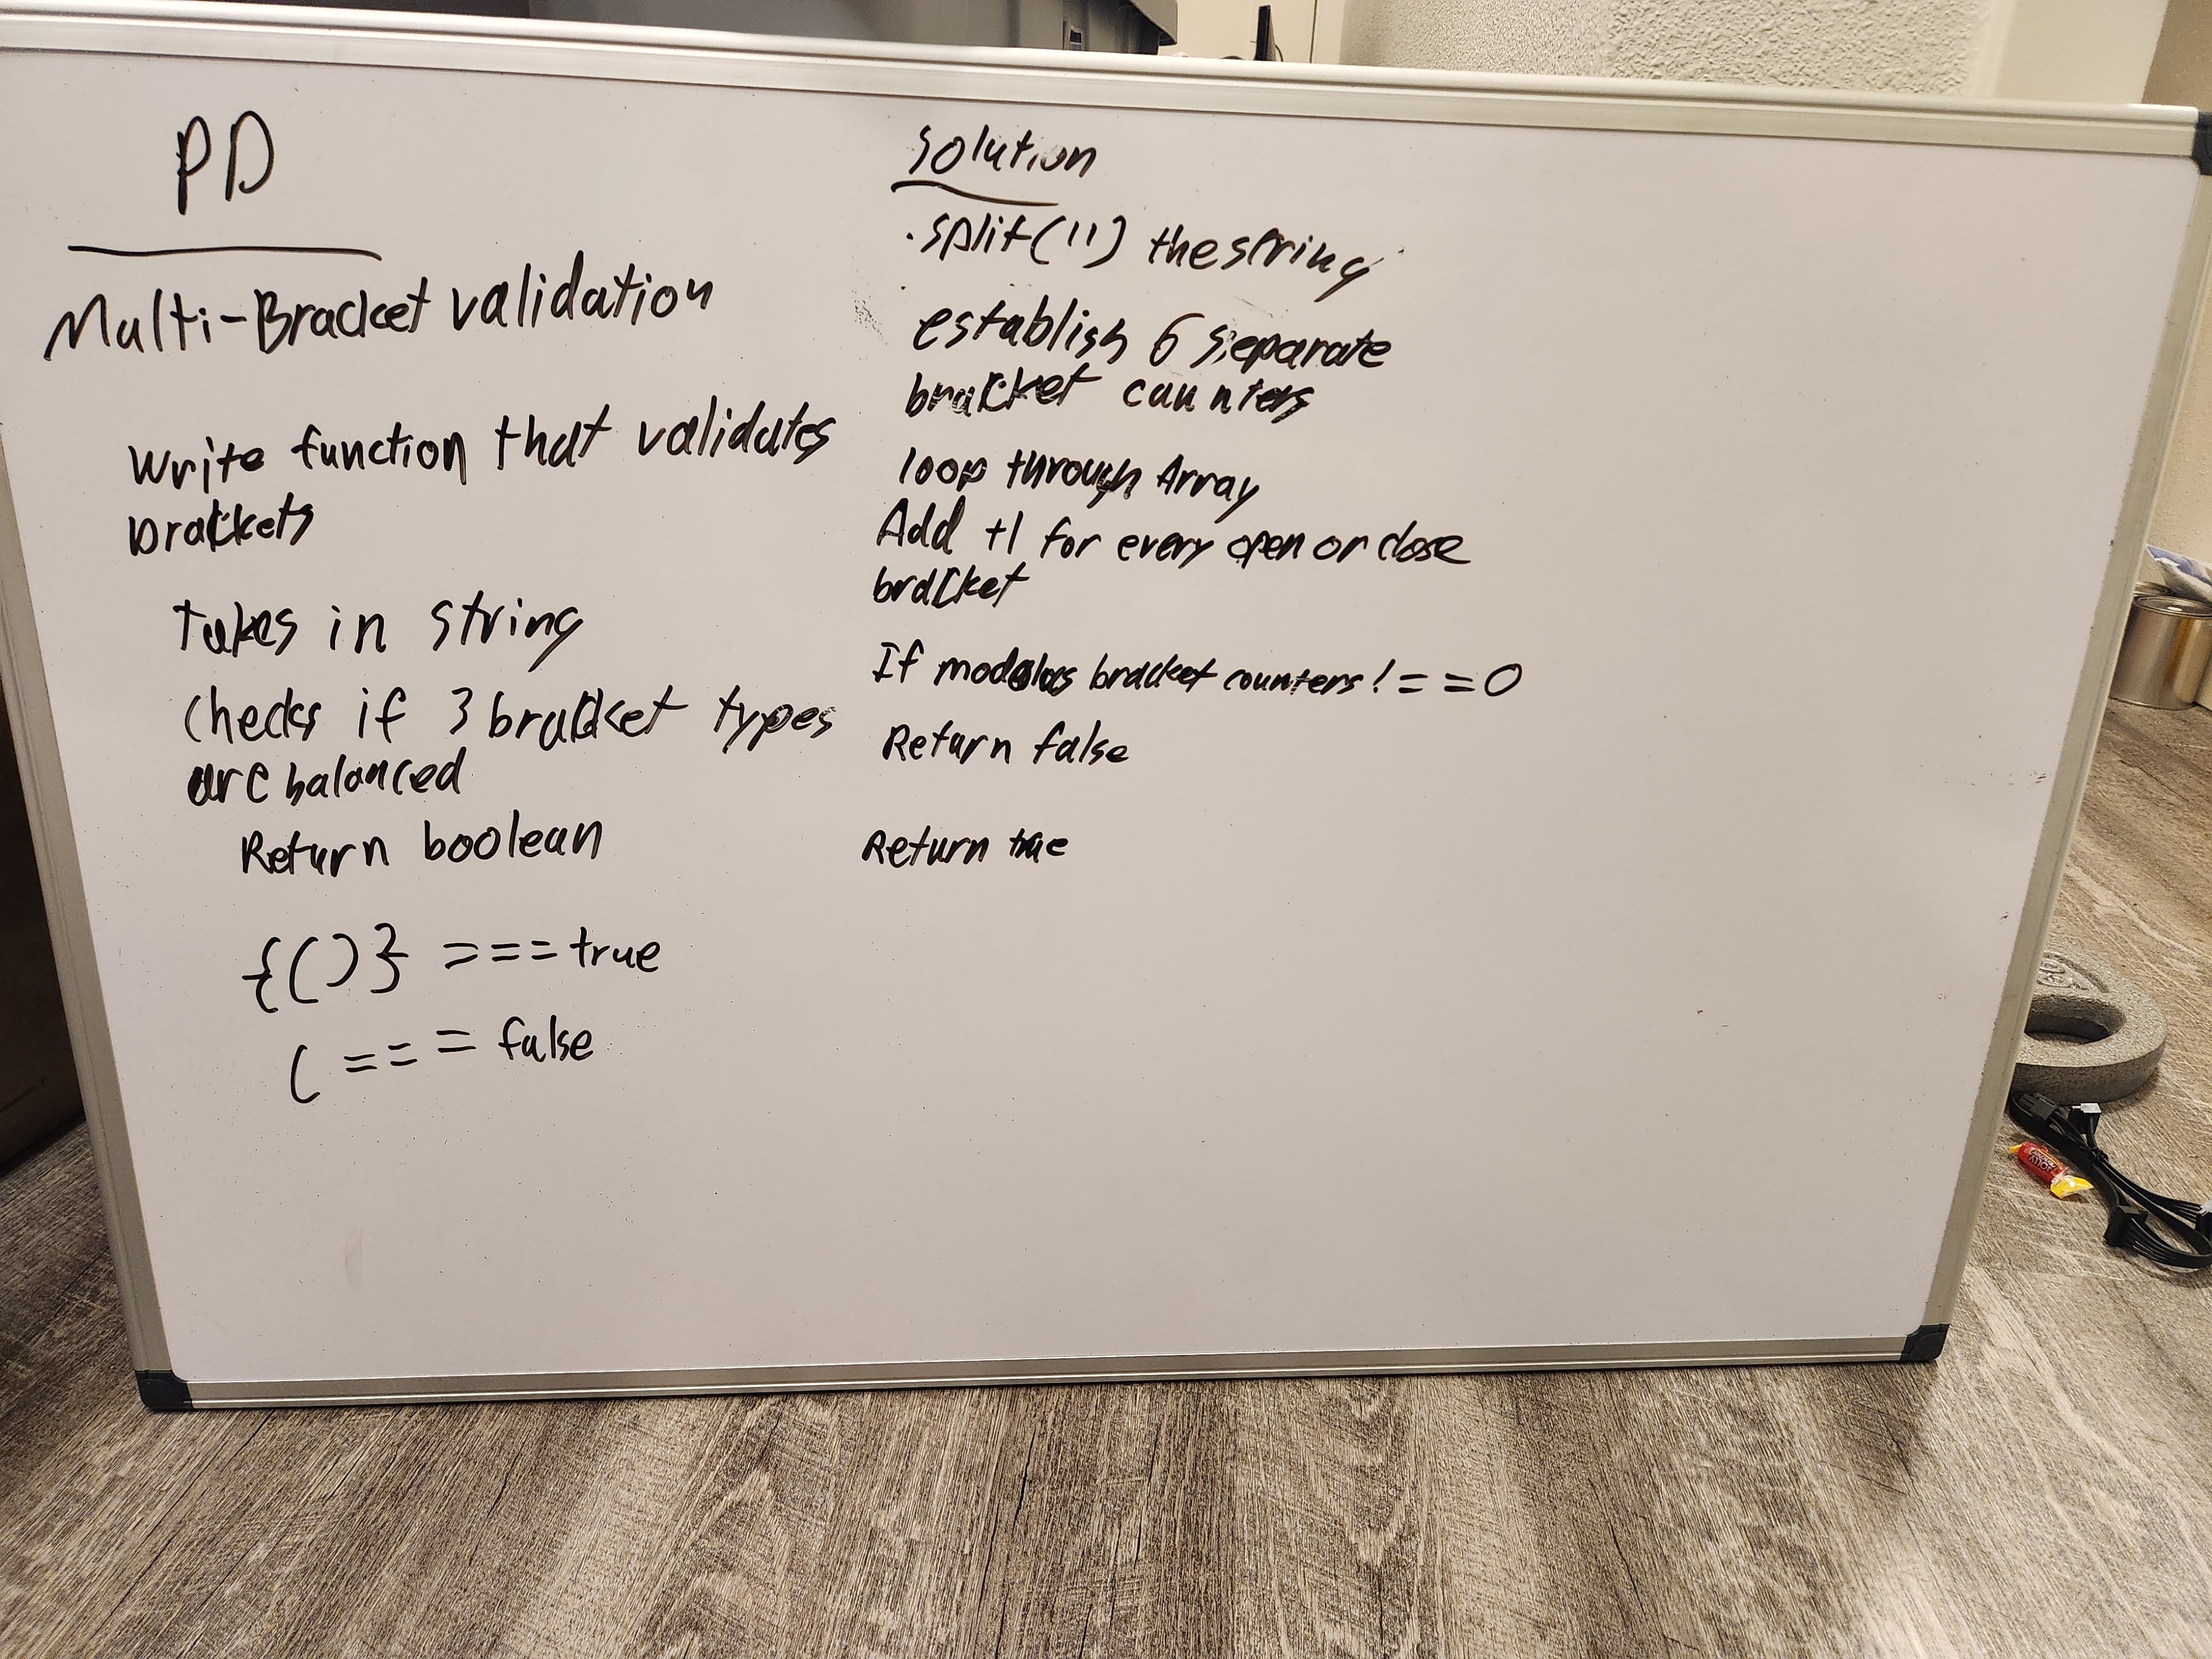 PD
Multi-Bracket validation
Write function that validates
brackets
Takes in string
Checks if 3 bracket types
are balanced
Return boolean
{()} === true
( === false
Solution
.split('') the string
establish 6 separate
bracket counters
loop through Array
Add +1 for every open or close
bracket
If modolos bracket counters !== 0
Return false
Return true